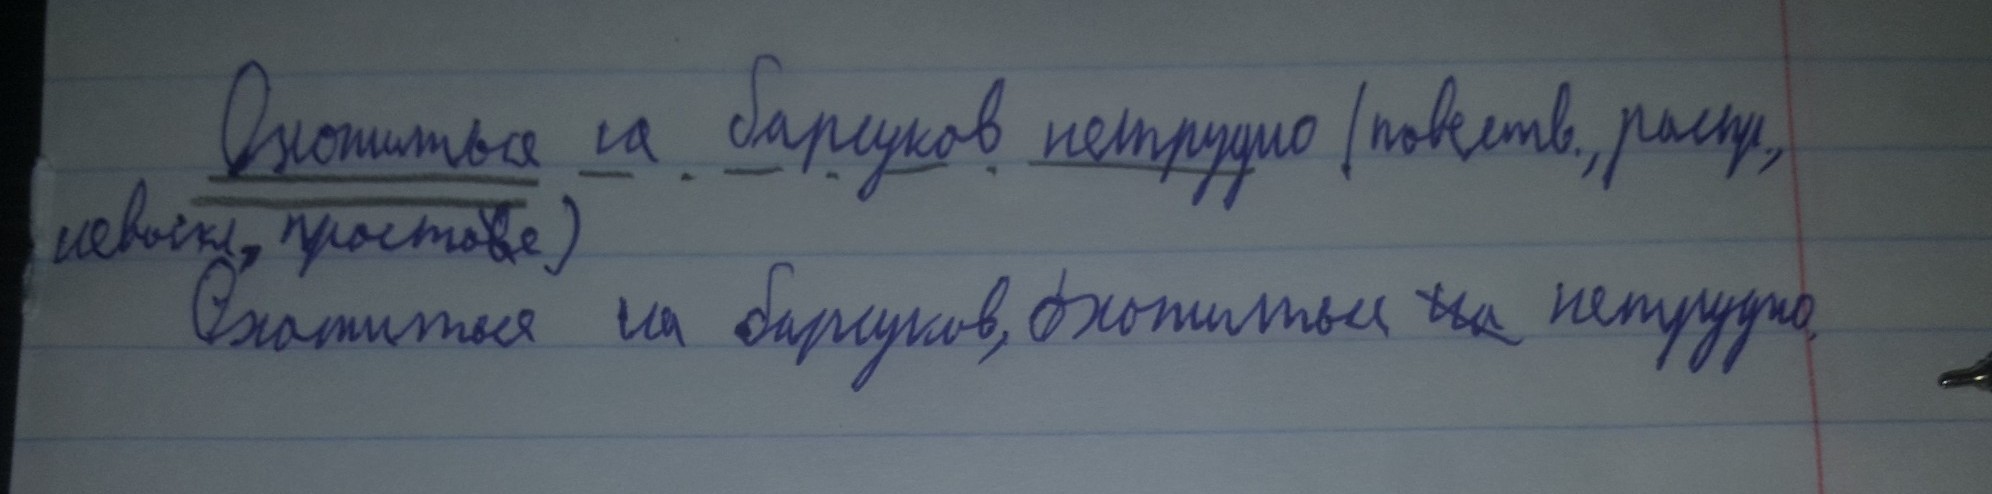 Охотиться на барсуков нетрудно (повеств., распр.,
невоскл, простое)
Охотиться на барсуков, Охотиться на нетрудно.